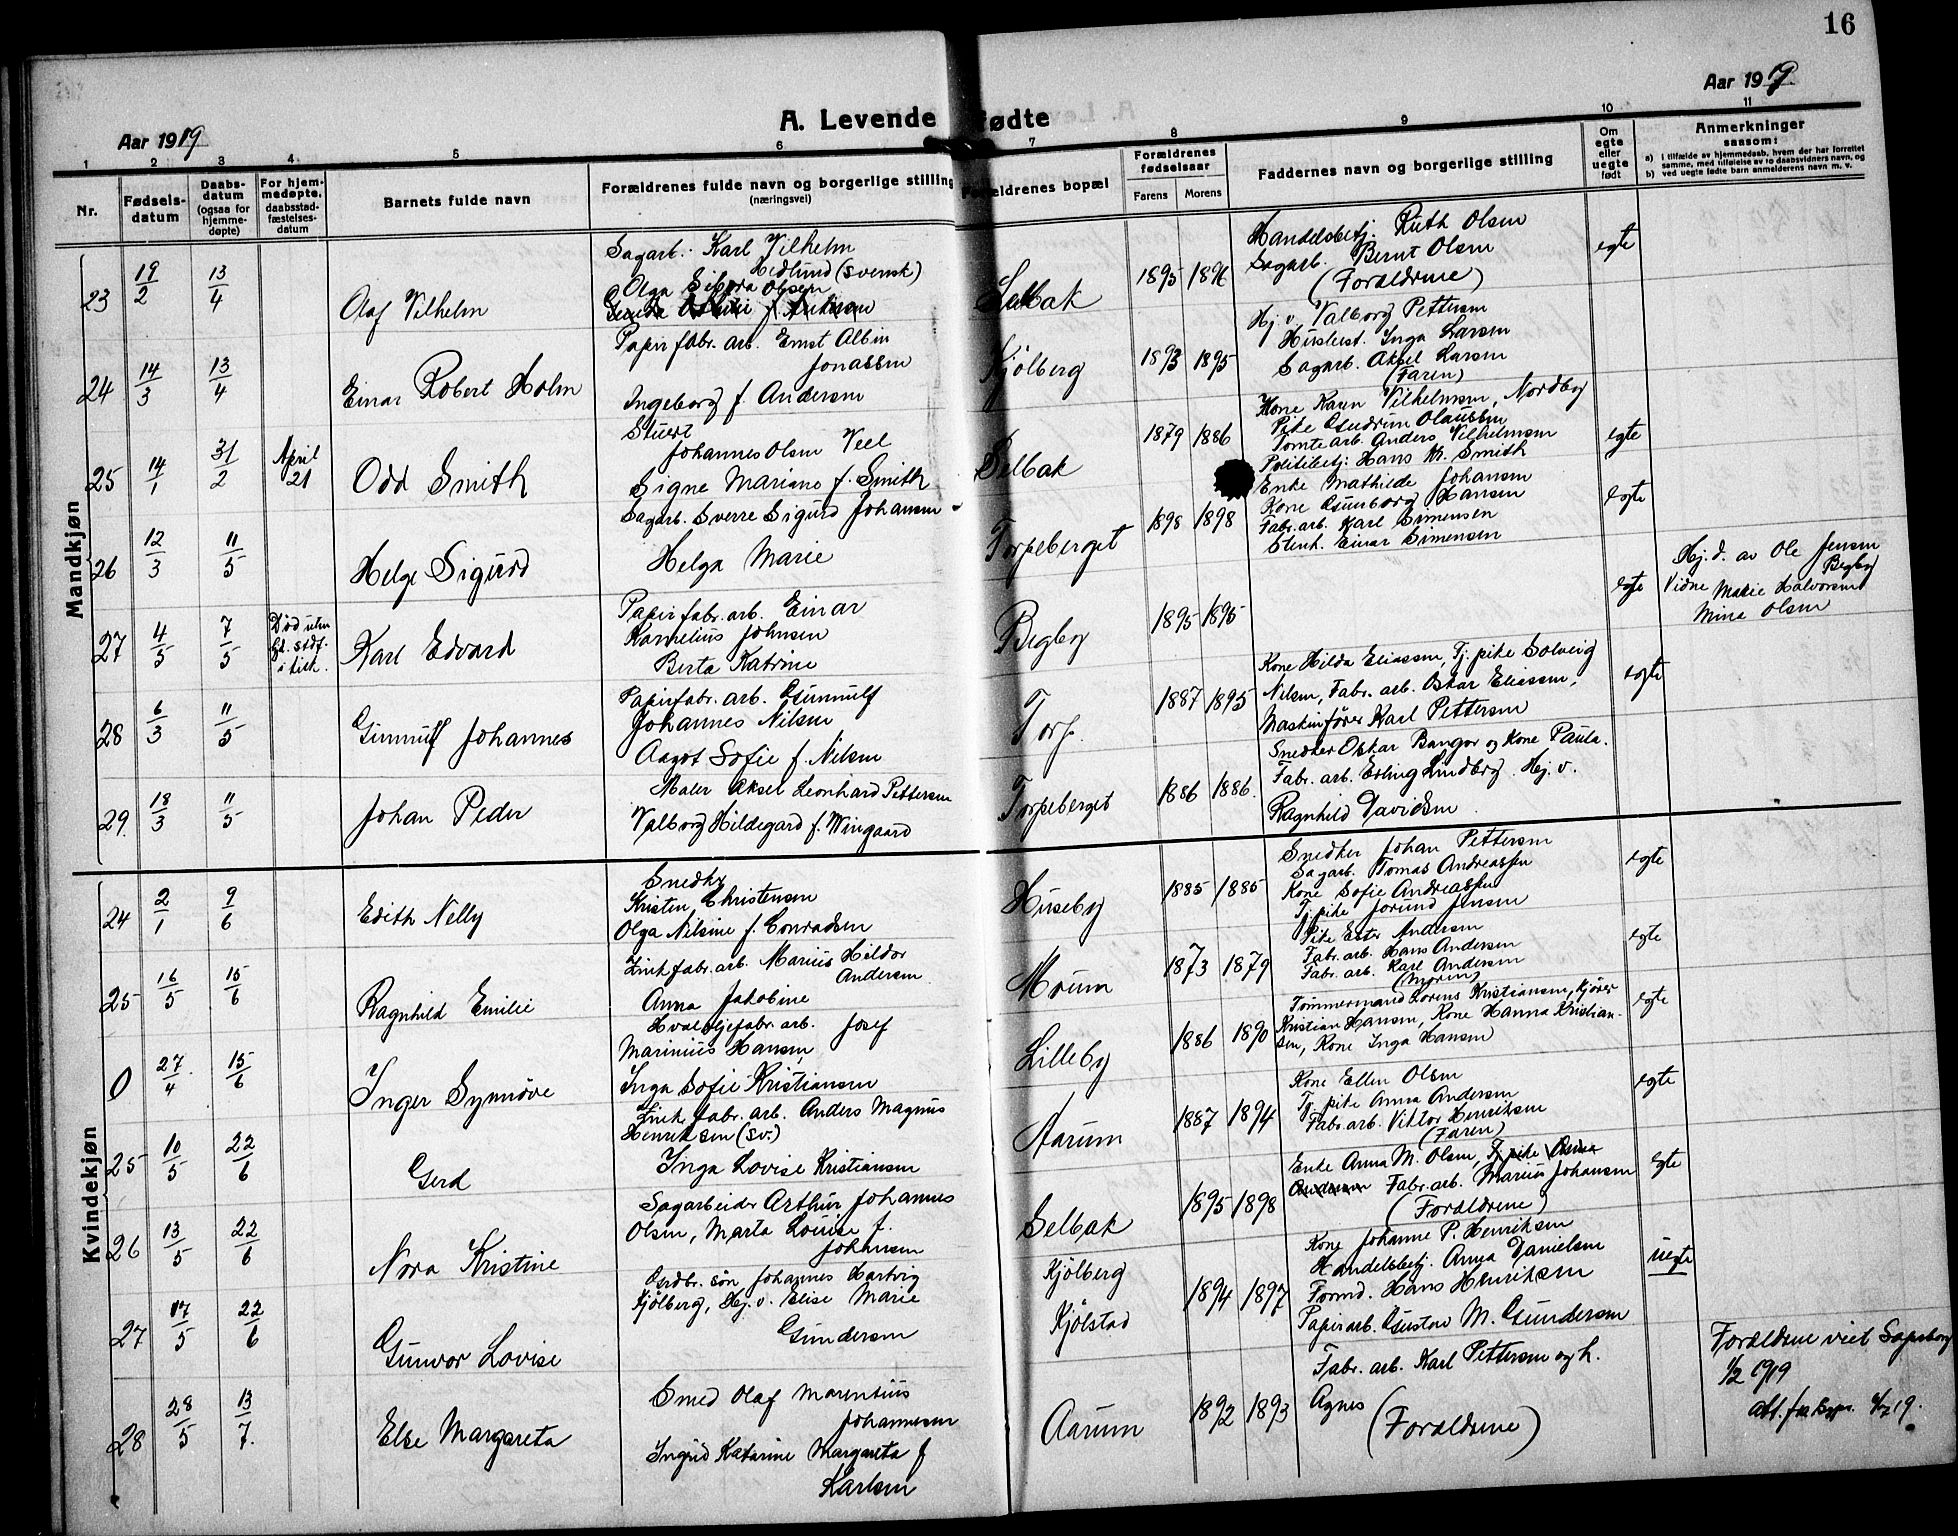 16
Aar 1919
Aar 1919
A. Levende fødte
1 2 3 4 5 6 7 8 9 10 11
Nr.
Fødsels-
datum
Daabs-
datum
(ogsaa for
hjemme-
døpte)
For hjem-
medøpte,
daabsstad-
fæstelses-
datum
Barnets fulde navn
Forældrenes fulde navn og borgerlige stilling
(næringsvei)
Forældrenes bopæl
Forældrenes
fødselsaar
Farens Morens
Faddernes navn og borgerlige stilling
Om
egte
eller
uegte
født
Anmerkninger
saasom:
a) i tilfælde av hjemmedaab, hvem der har forrettet
samme, med tilføielse av 10 daabsvidners navn, og
b) ved uegte fødte barn anmelderens navn m. v.
Mandkjøn
23 19/2 13/4
Olaf Vilhelm
Sagarb. Karl Vilhelm
Hedlund (svensk)
Olga Sibora Olsen
Selbak
1895 1896
Handelsbetj. Ruth Olsen
Sagarb. Bernt Olsen
(Forældrene)
egte
24 14/3 13/4
Einar Robert Holm
Papirfabr. arb. Ernst Albin
Jonassen
Ingeborg f. Andersen
Kjölberg
1893 1895
Hj. v. Valborg Pettersen
Husbest. Inga Larsen
Sagarb. Aksel Larsen
(Faren)
25 14/1 31/2 April 21
Odd Smith
Stuert
Johannes Olsen Veel
Signe Mariane f. Smith
Selbak
1879 1886
Kone Karen Vilhelmsen, Nordby
Pike Gudrun Olaussen
Tomtearb. Anders Vilhelmsen
Politibetj. Hans M. Smith
egte
26 12/3 11/5
Helge Sigurd
Sagarb. Sverre Sigurd Johansen
Helga Marie
Torpeberget
1898 1898
Enke Mathilde Johansen
Kone Gunborg Hansen
Fabr. arb. Karl Simensen
Stenh. Einar Simensen
egte
27 4/5 7/5
Død uten
st. stdf.
i kirk.
Karl Edvard
Papirfabr. arb. Einar
Kornelius Johnsen
Berta Katrine
Begby
1895 1895
egte
Hj. d. av Ole Jensen
Begby
Vidne Marie Halvorsen
Mina Olsen
28 6/3 11/5
Gunnulf Johannes
Papirfabr. arb. Gunnulf
Johannes Nilsen
Aagot Sofie f. Nilsen
Torp.
1887 1895
Kone Hilda Eliassen, Tj. pike Solveig
Nilsen, Fabr. arb. Oskar Eliassen,
Maskinfører Karl Pettersen
egte
29. 18/3 11/5
Johan Peder
Maler Aksel Leonhard Pettersen
Valborg Hildegard f. Wingaard
Torpeberget
1886 1886.
Snedker Oskar Bangor og Kone Paula.
Fabr. arb. Erling Lindberg. Hj. v.
Ragnhild Davidsen.
Kvindekjøn
24 2/1 9/6
Edith Nelly
Snedker
Kristen Christensen
Olga Nilsine f. Conradsen
Huseby
1885 1885
Snedker Johan Pettersen
Sagarb. Tomas Andreassen
Kone Sofie Andreassen
Tj. pike Jorund Jensen
egte
25 16/5 15/6
Ragnhild Emilie
Zinkfabr. arb. Marius Hildor
Andersen
Anna Jakobine
Moum
1873 1879
Pike Ester Andersen
Fabr. arb. Hans Andersen
Fabr. arb. Karl Andersen
(Moren)
egte
0 27/4. 15/6
Inger Synnöve
Hvaloljefabr. arb. Josef
Marinius Hansen
Inga Sofie Kristiansen
Lilleby
1886 1890
Tömmermand Lorens Kristiansen, Kjörer
Kristian Hansen, Kone Hanna Kristian-
sen, Kone Inga Hansen
egte
25 10/5 22/6
Gerd
Zink fabr. arb. Anders Magnus
Henriksen (sv.)
Inga Lovise Kristiansen
Aarum
1887 1894
Kone Ellen Olsen
Tj. pike Anna Andersen
Fabr. arb. Viktor Henriksen
(Faren)
egte
26 13/5 22/6
Nora Kristine
Sagarbeider Arthur Johannes
Olsen, Marta Louise f.
Johansen
Selbak
1895 1898
Enke Anna M. Olsen, Tj. pike Anna
Andersen Fabr. arb. Marius Johansen
(Forældrene)
egte
27 17/5 22/6
Gunvor Lovise
Gårdbr. sön Johannes Hartvig
Kjölberg, Hj. v. Elise Marie
Gundersen
Kjölberg
Kjölstad
1894 1897
Kone Johanne P. Henriksen
Handelsbetj. Anna Danielsen
Formd. Hans Henriksen
Papirarb. Gustav M. Gundersen
uegte
28 28/5 13/7.
Else Margareta
Smed Olaf Marentius
Johannesen
Ingrid Katarine Margareta f
Karlsen
Aarum
1892 1893
Fabr. arb. Karl Pettersen og h.
Agnes
(Forældrene)
Forældrene viet Sarpsborg
1/2 1919